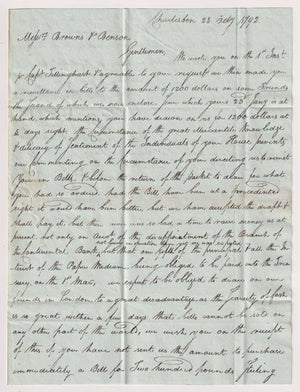 Charleston 23 Feby 1792
Messrs Browns & Benson,
Gentlemen,
We wrote you on the 1st Inst.
Capt. Tillinghast & agreeable to your request we then made you
a remittance in bills to the amount of 1200 dollars on some friends
the friend of which we now enclose, since which yours 23d Jany is at
hand, which mentions your have drawn on us for 1200 dollars at
6 days sight, the circumstance of the great Mercantile Knowledge
& delicacy of sentiment of the Individuals of your House prevents
our commenting on the Circumstance of your directing us to remit
you in Bills & before the return of the packet to draw for what
you had so ordered, had the Bill been at a
sight it would have been better, but we have accepted the draft &
shall pay it, but there never was so bad a time to raise money as at
present, not only on account of the disappointment of the Branch of
the Continental Bank, but that one fifth of the principal & all the In
terest of the Paper Medium, being obliged to be paid into the Trea
sury on the 1st March, we expect to be obliged to draw on our
friends in London, to a great disadvantage as the scarcity of cash
is so great within a few days that bills cannot be sold on
any other part of the world, we wish you on the receipt
of this if you have not sent us the amount to purchase
immediately a Bill for Two hundred pounds Sterling